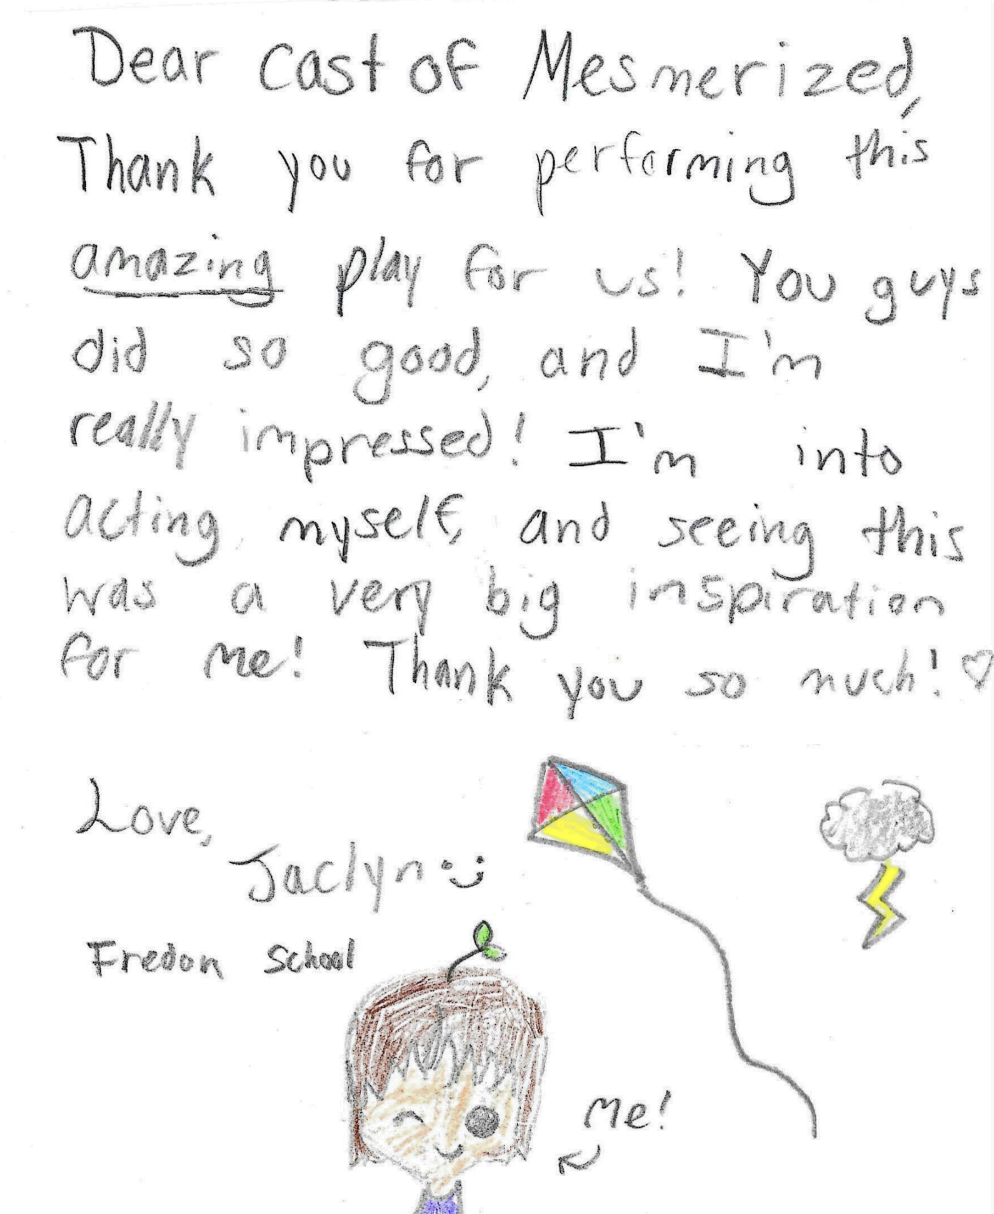 Dear Cast of Mesmerized,
Thank you for performing this
amazing play for us! You guys
did so good, and I'm
really impressed! I'm into
acting myself, and seeing this
was a very big inspiration
for me! Thank you so much! ♡
Love,
Jaclyn :)
Fredon School
Me!